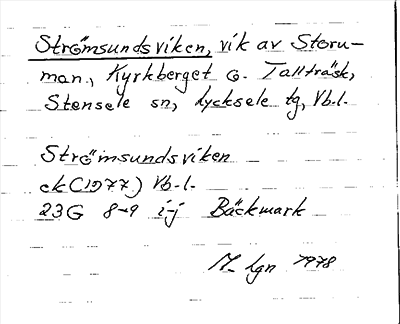 Strömsundsviken, vik av Storu-
man., Kyrkberget o. Tallträsk,
Stensele sn, Lycksele tg, Vb.l.
Strömsundsviken
ek (1977) Vb.l.
23G 8-9 i-j Bäckmark
M Lgn 1978